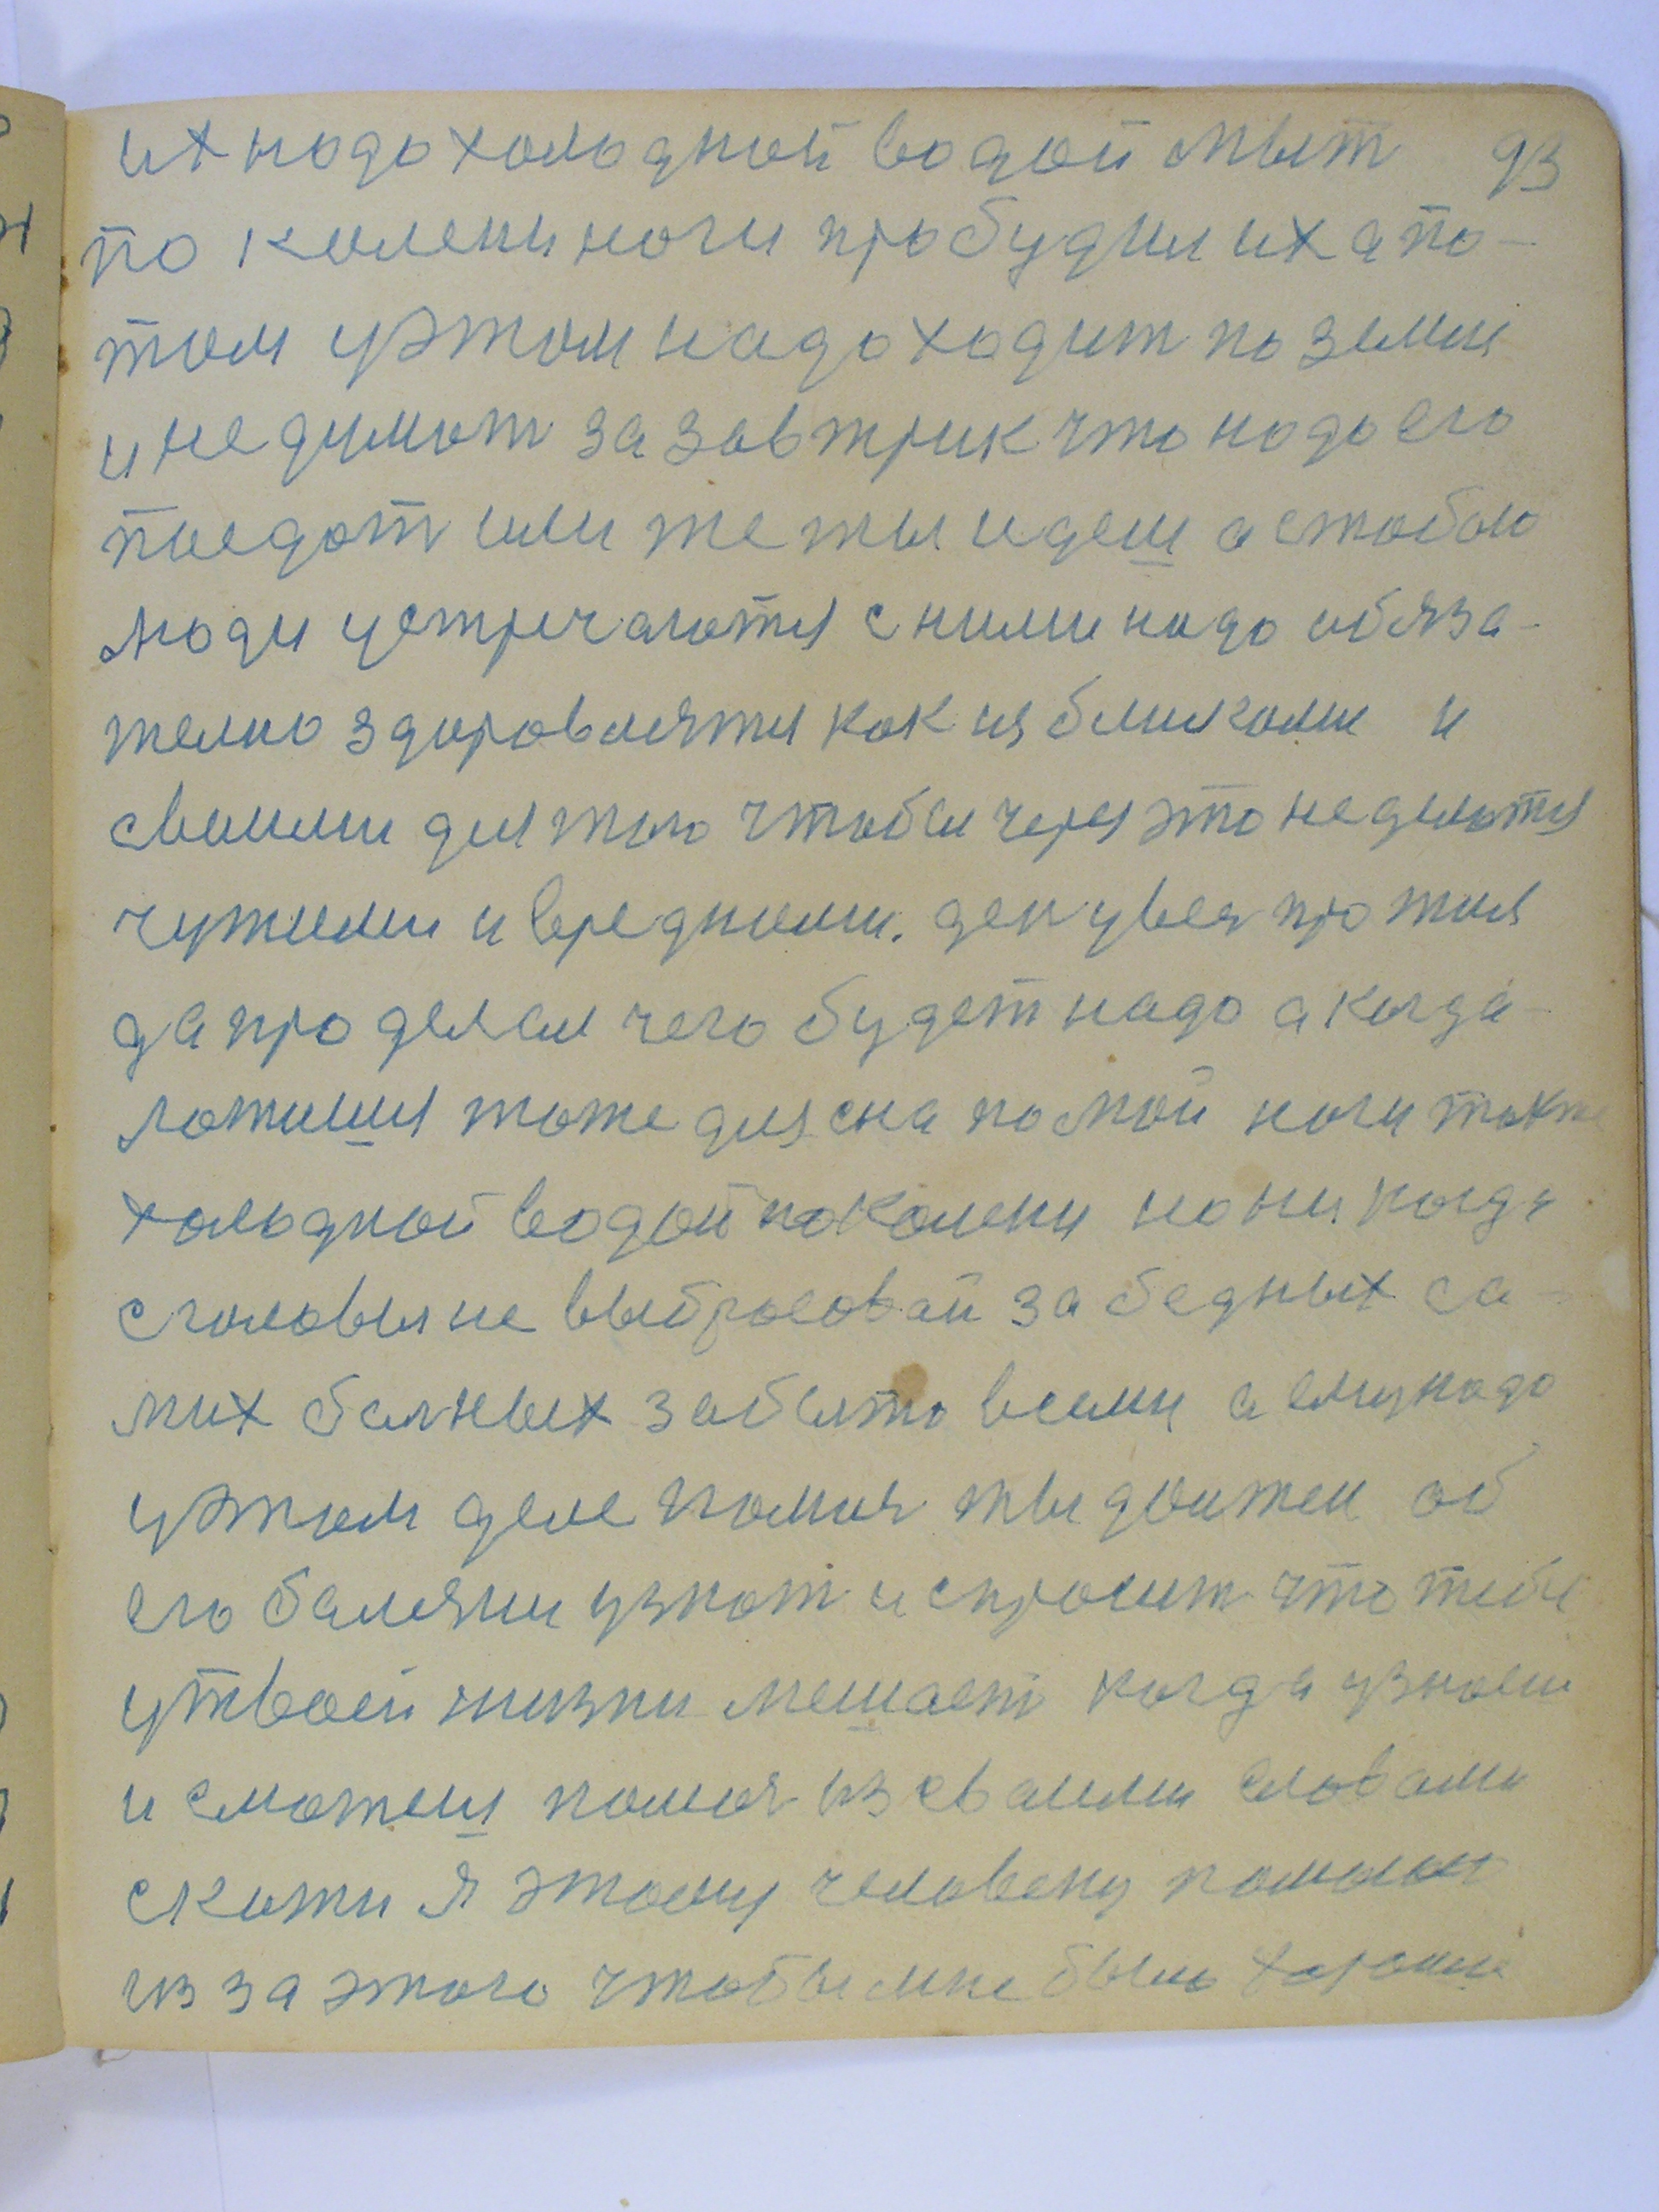 их надо холодной водой мыт 93
по колени ноги пробудил их а по-
том уэтом надо ходит по земли
и не думат за завтрик что надо его
поедат или же ты идеш а стобою
люди устричаются с ними надо обяза-
телно здоровлятся как из близкими и
своими для того чтобы через это не делатся
чужими и вредними. ден увес прожил
да проделал чего будет надо а когда
ложишся тоже для сна помой ноги также
холодной водой по колени но никогда
сголовы не выбросовай за бедных са-
мих балных забыто всеми а ему надо
уэтом деле помоч ты должен об
его балезни узнат и спросит что тебе
утвоей жизни мешает когда узнаеш
и сможеш помоч из своими словами
скажи я этому человеку помогаю
из за этого чтобы мне было хорошо